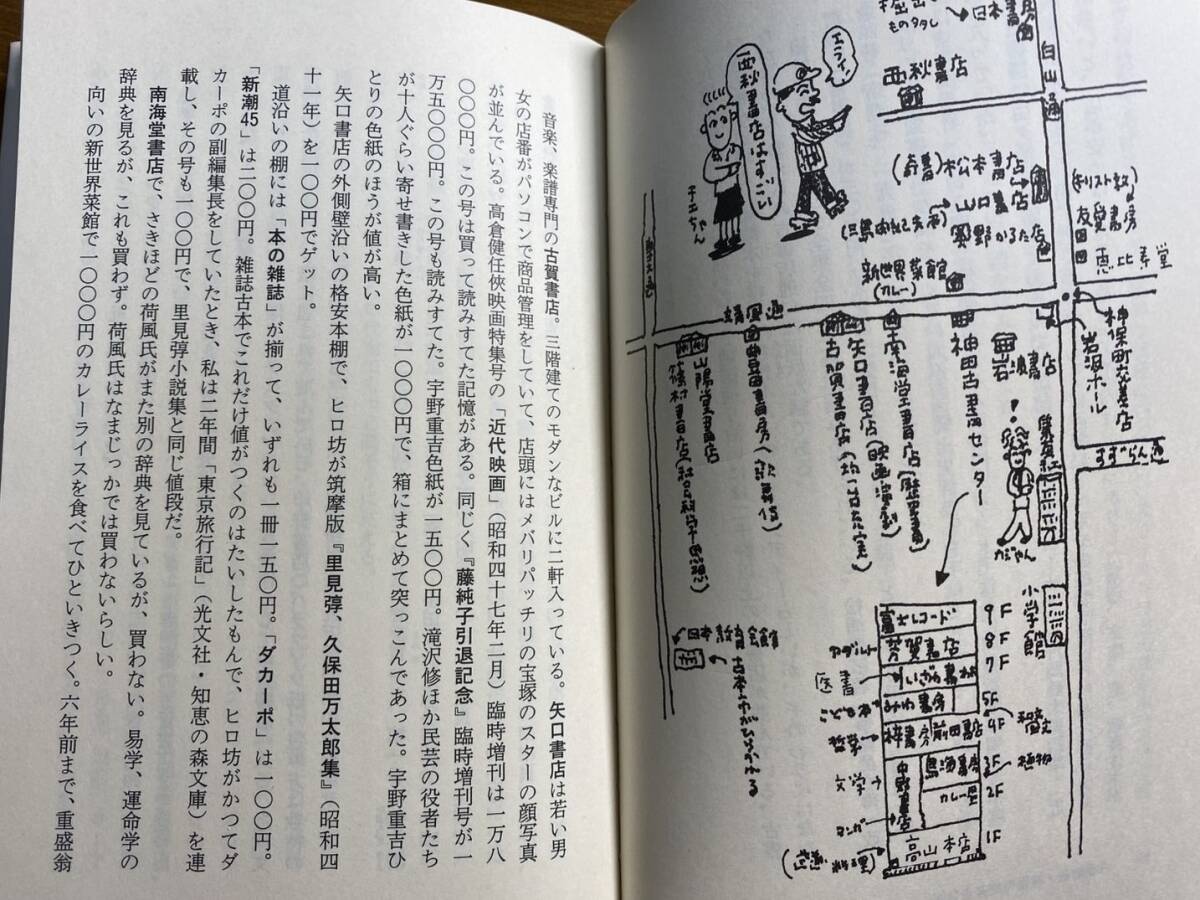 音楽、楽譜専門の古賀書店。三階建てのモダンなビルに二軒入っている。矢口書店は若い男
女の店番がパソコンで商品管理をしていて、店頭にはメバリパッチリの宝塚のスターの顔写真
が並んでいる。高倉健任俠映画特集号の「近代映画」（昭和四十七年二月）臨時増刊は一万八
〇〇〇円。この号は買って読みすてた記憶がある。同じく『藤純子引退記念』臨時増刊号が一
万五〇〇〇円。この号も読みすてた。宇野重吉色紙が一五〇〇円。滝沢修ほか民芸の役者たち
が十人ぐらい寄せ書きした色紙が一〇〇〇円で、箱にまとめて突っこんであった。宇野重吉ひ
とりの色紙のほうが値が高い。
矢口書店の外側壁沿いの格安本棚で、ヒロ坊が筑摩版『里見弴、久保田万太郎集』（昭和四
十一年）を一〇〇円でゲット。
道沿いの棚には「本の雑誌」が揃って、いずれも一冊一五〇円。「ダカーポ」は一〇〇円。
「新潮45」は二〇〇円。雑誌古本でこれだけ値がつくのはたいしたもんで、ヒロ坊がかつてダ
カーポの副編集長をしていたとき、私は二年間「東京旅行記」（光文社・知恵の森文庫）を連
載し、その号も一〇〇円で、里見弴小説集と同じ値段だ。
南海堂書店で、さきほどの荷風氏がまた別の辞典を見ているが、買わない。易学、運命学の
辞典を見るが、これも買わず。荷風氏はなまじっかでは買わないらしい。
向いの新世界菜館で一〇〇〇円のカレーライスを食べてひといきつく。六年前まで、重盛翁
ものタタし
→日本書
白山通
西秋書店
エライ!
西秋書店はすごい
チエちゃん
(奇書)松本書店
山口書店
(三島由紀夫 )
奥野かるた店
新世界菜館
(カレー)
(キリスト教)
友愛書房
恵比寿堂
靖国通
神保町交差点
岩波ホール
岩波書店
神田古書センター
南海堂書店(歴史書)
矢口書店(映画演劇)
古賀書店
豊田書房(歌舞伎)
山陽堂書店
篠村書店(社会科学思想)
!
カジやん
すずらん通
小学館
日本教育会館
古本市がひらかれる
富士レコード 9F
アダルト 芳賀書店 8F
医書 かいざわ書林 7F
こども本 みわ書房 5F
哲学→ 梓書房 前田書店 4F
文学→ 中野書店 鳥海書房 3F ←植物
マンガ カレー屋 2F
高山本店 1F